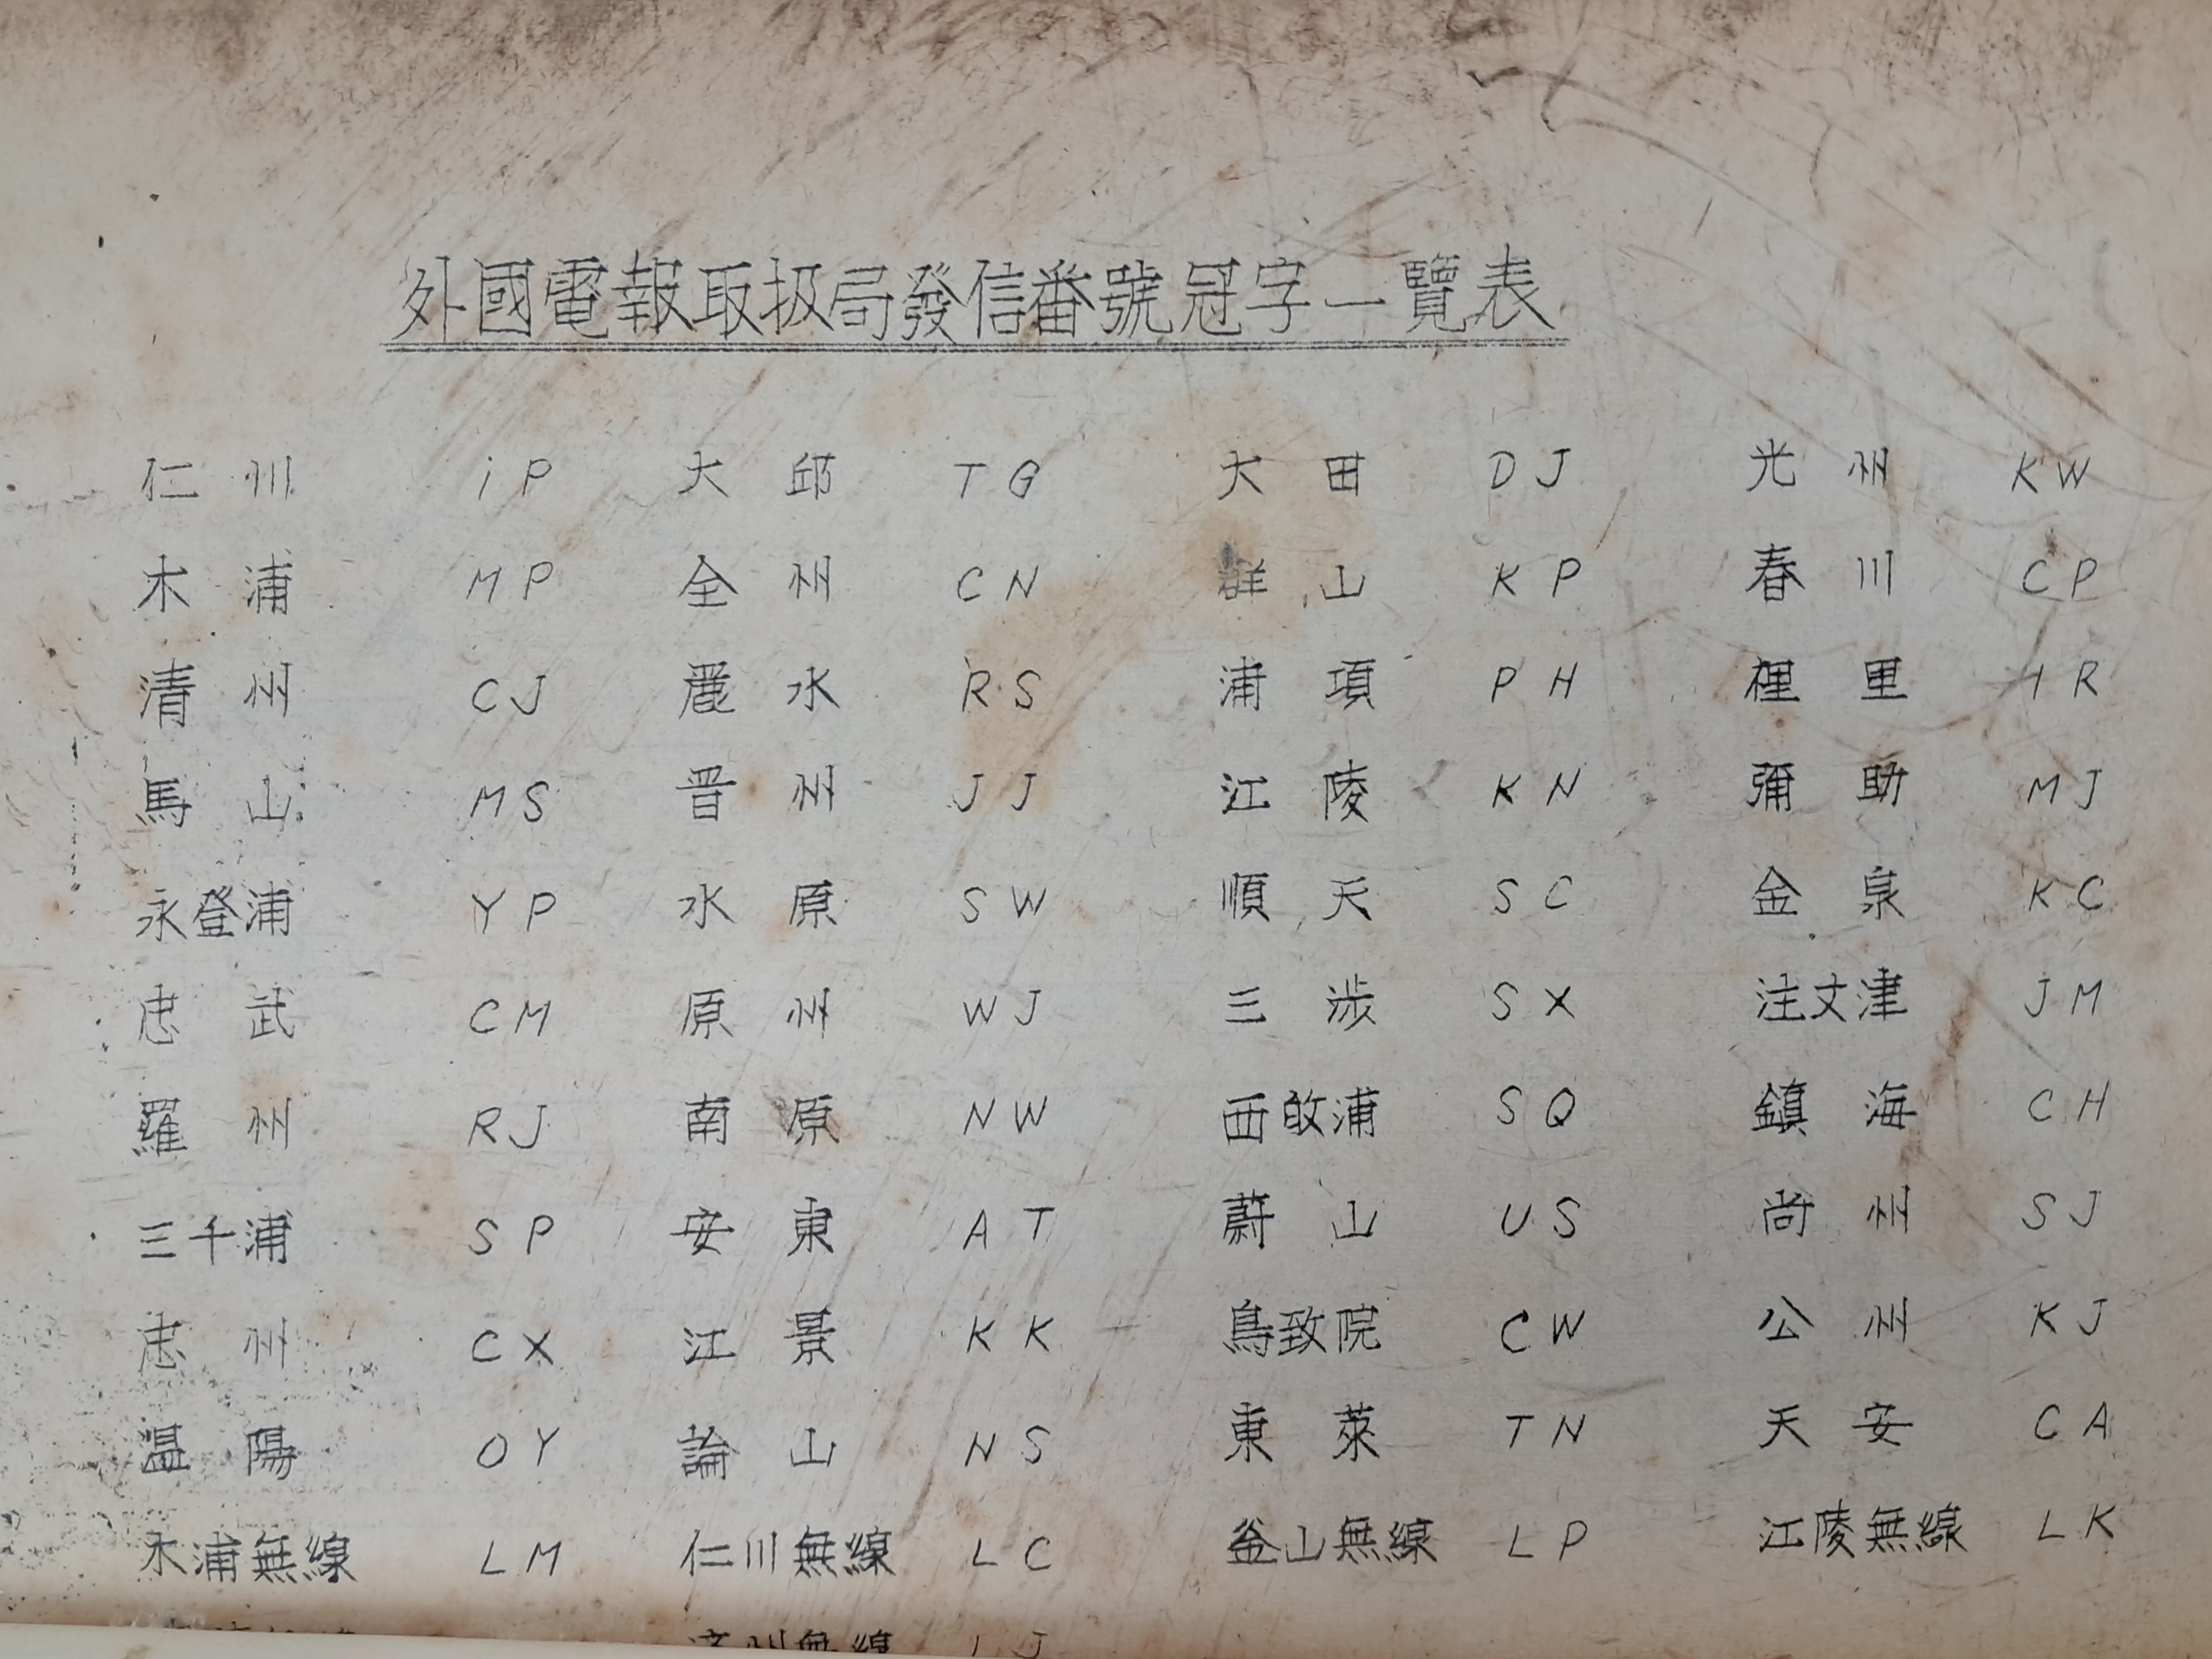 外國電報取扱局發信番號冠字一覽表
仁州 iP 大邱 TG 大田 DJ 光州 KW
木浦 MP 全州 CN 群山 KP 春川 CP
清州 CJ 麗水 RS 浦項 PH 裡里 IR
馬山 MS 晋州 JJ 江陵 KN 彌助 MJ
永登浦 YP 水原 SW 順天 SC 金泉 KC
忠武 CM 原州 WJ 三渉 SX 注文津 JM
羅州 RJ 南原 NW 西敀浦 SQ 鎮海 CH
三千浦 SP 安東 AT 蔚山 US 尚州 SJ
忠州 CX 江景 KK 鳥致院 CW 公州 KJ
温陽 OY 論山 NS 東萊 TN 天安 CA
木浦無線 LM 仁川無線 LC 釜山無線 LP 江陵無線 LK
濟州無線 LJ